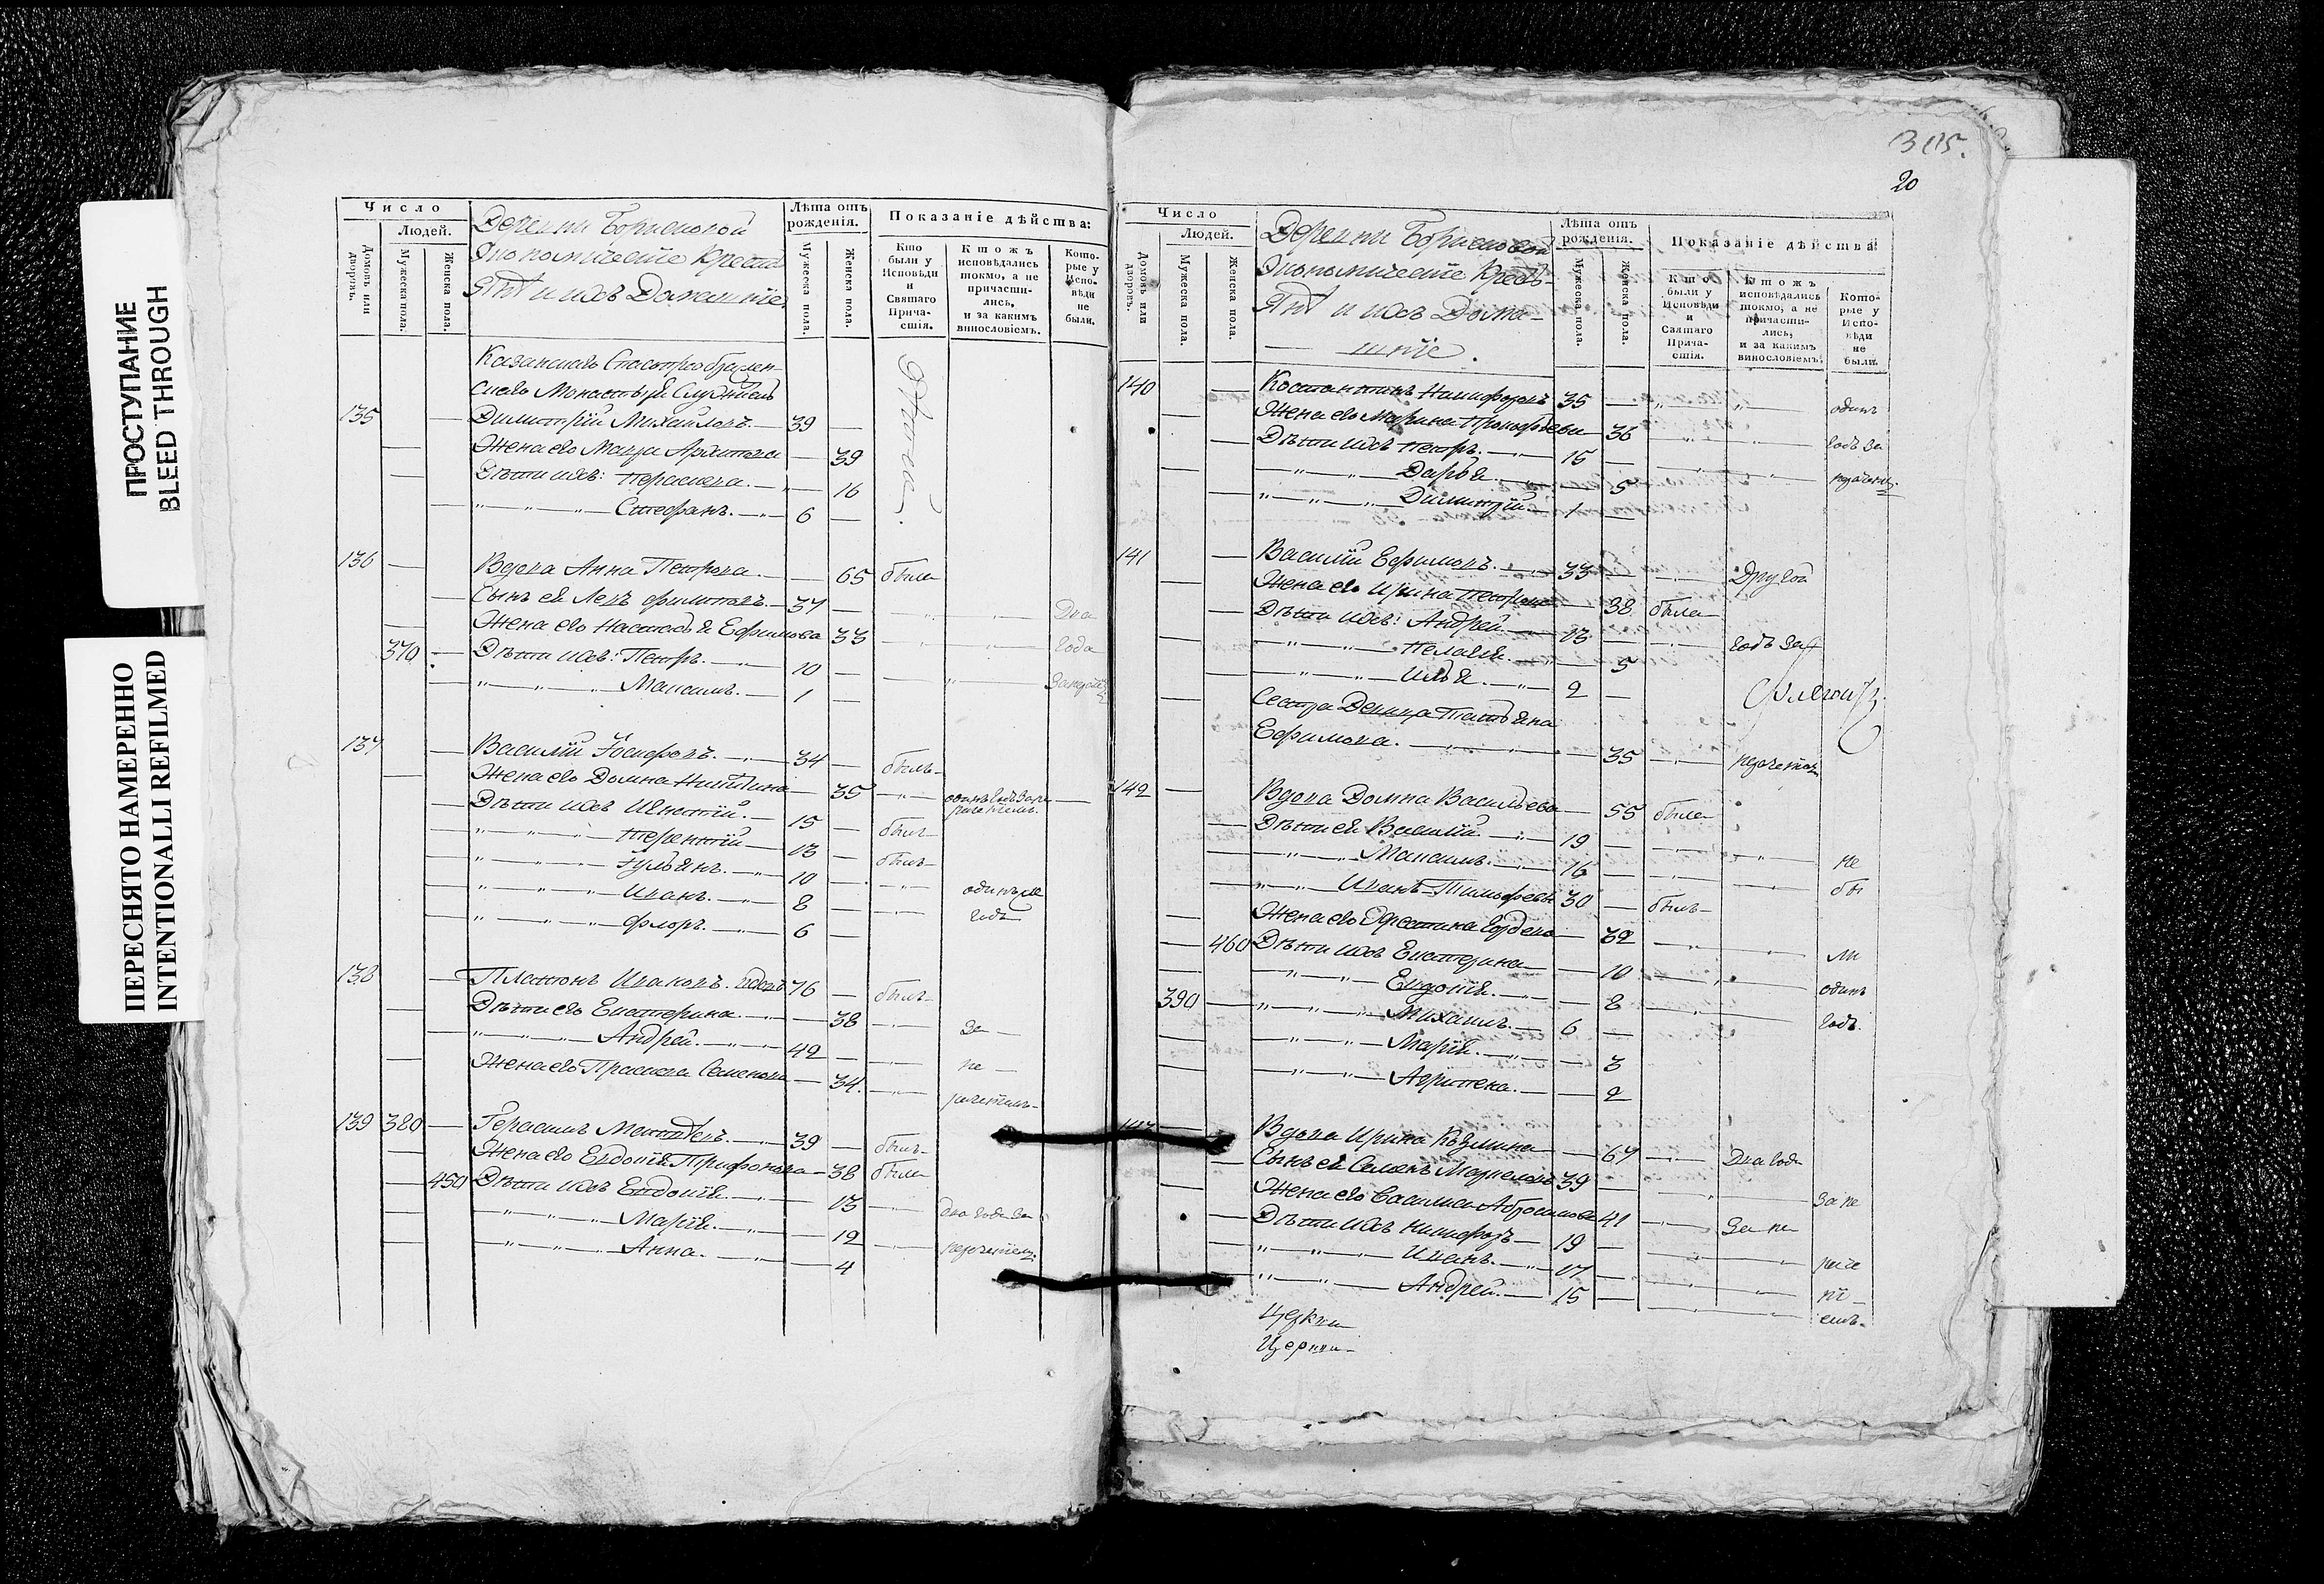 ПРОСТУПАНИЕ
BLEED THROUGH
ПЕРЕСНЯТО НАМЕРЕННО
INTENTIONALLI REFILMED
Число
Людей.
Домовъ или дворовъ.
Мужеска пола.
Женска пола.
Деревни Борисковой
Экономическіе Кресть
янѣ и ихъ Домашніе
Лѣта отъ рожденія.
Мужеска пола.
Женска пола.
Показаніе дѣйства:
Кто были у Исповѣди и Святаго Причастія.
Ктожъ исповѣдались токмо, а не причастились, и за какимъ винословіемъ.
Которые у Исповѣди не были.
Казанскаго Спасопреображен-
скаго Монастыря Служитель
135 Димитрій Михайловъ. 39
Жена его Марѳа Архипова 39
Дѣти ихъ: Параскева. 16
Стефанъ. 6
136 Вдова Анна Петрова. 65 была
Сынъ ея Левъ Филиповъ. 37 Два
Жена его Настасья Ефимова 33 года
370 Дѣти ихъ: Петръ. 10
Максимъ. 1
137 Василій Іосифовъ. 34 былъ
Жена его Домна Никитина 35
Дѣти ихъ Игнатій. 15 былъ
Терентій 13 былъ
Іульянъ. 10
Иванъ. 8
годъ
Флоръ. 6
138 Платонъ Ивановъ. вдовъ 76 былъ
Дѣти его Екатерина. 38 за
Андрей. 42 не
Жена его Прасковья Семенова 34
139 380 Герасимъ Матвѣевъ. 39 былъ
Жена его Евдокія Трифонова 38 была
450 Дѣти ихъ Евдокія. 13 два года за
Марія. 12
Анна. 4
20
Число
Людей.
Домовъ или дворовъ.
Мужеска пола.
Женска пола.
Деревни Борисковой
Экономическіе Кресть-
янѣ и ихъ Дома-
шніе.
Лѣта отъ рожденія.
Мужеска пола.
Женска пола.
Показаніе дѣйства:
Кто были у Исповѣди и Святаго Причастія.
Ктожъ исповѣдались токмо, а не причастились, и за какимъ винословіемъ.
Которые у Исповѣди не были.
140 Костантинъ Никифоровъ 35 одинъ
Жена его Марина Прокофьева 36 годъ за
Дѣти ихъ Петръ. 15
Дарья. 5
Димитрій 1
141 Василій Ефимовъ. 33 Другой
Жена его Ирина Петрова 38 была
Дѣти ихъ: Андрей 13 годъ за
Пелагія. 5
Илья. 2
Сестра Девица Татьяна
Ефимова. 35
142 Вдова Домна Васильева 55 была
Дѣти ея Василій. 19 не
Максимъ. 16 бы
Иванъ Тимофеевъ 30 былъ
Жена его 32 ли
460 Дѣти ихъ Екатерина 10 одинъ
Евдокія. 8 годъ
390 Михаилъ. 6
Марія. 3
Агрипена. 2
Вдова Ирина Козмина 67 Два года
Сынъ ея Семенъ 39 за не
Жена его Василиса Абросимова 41 за не
Дѣти ихъ Никифоръ 19
Иванъ. 17
Андрей. 15
Церкви
Церкви